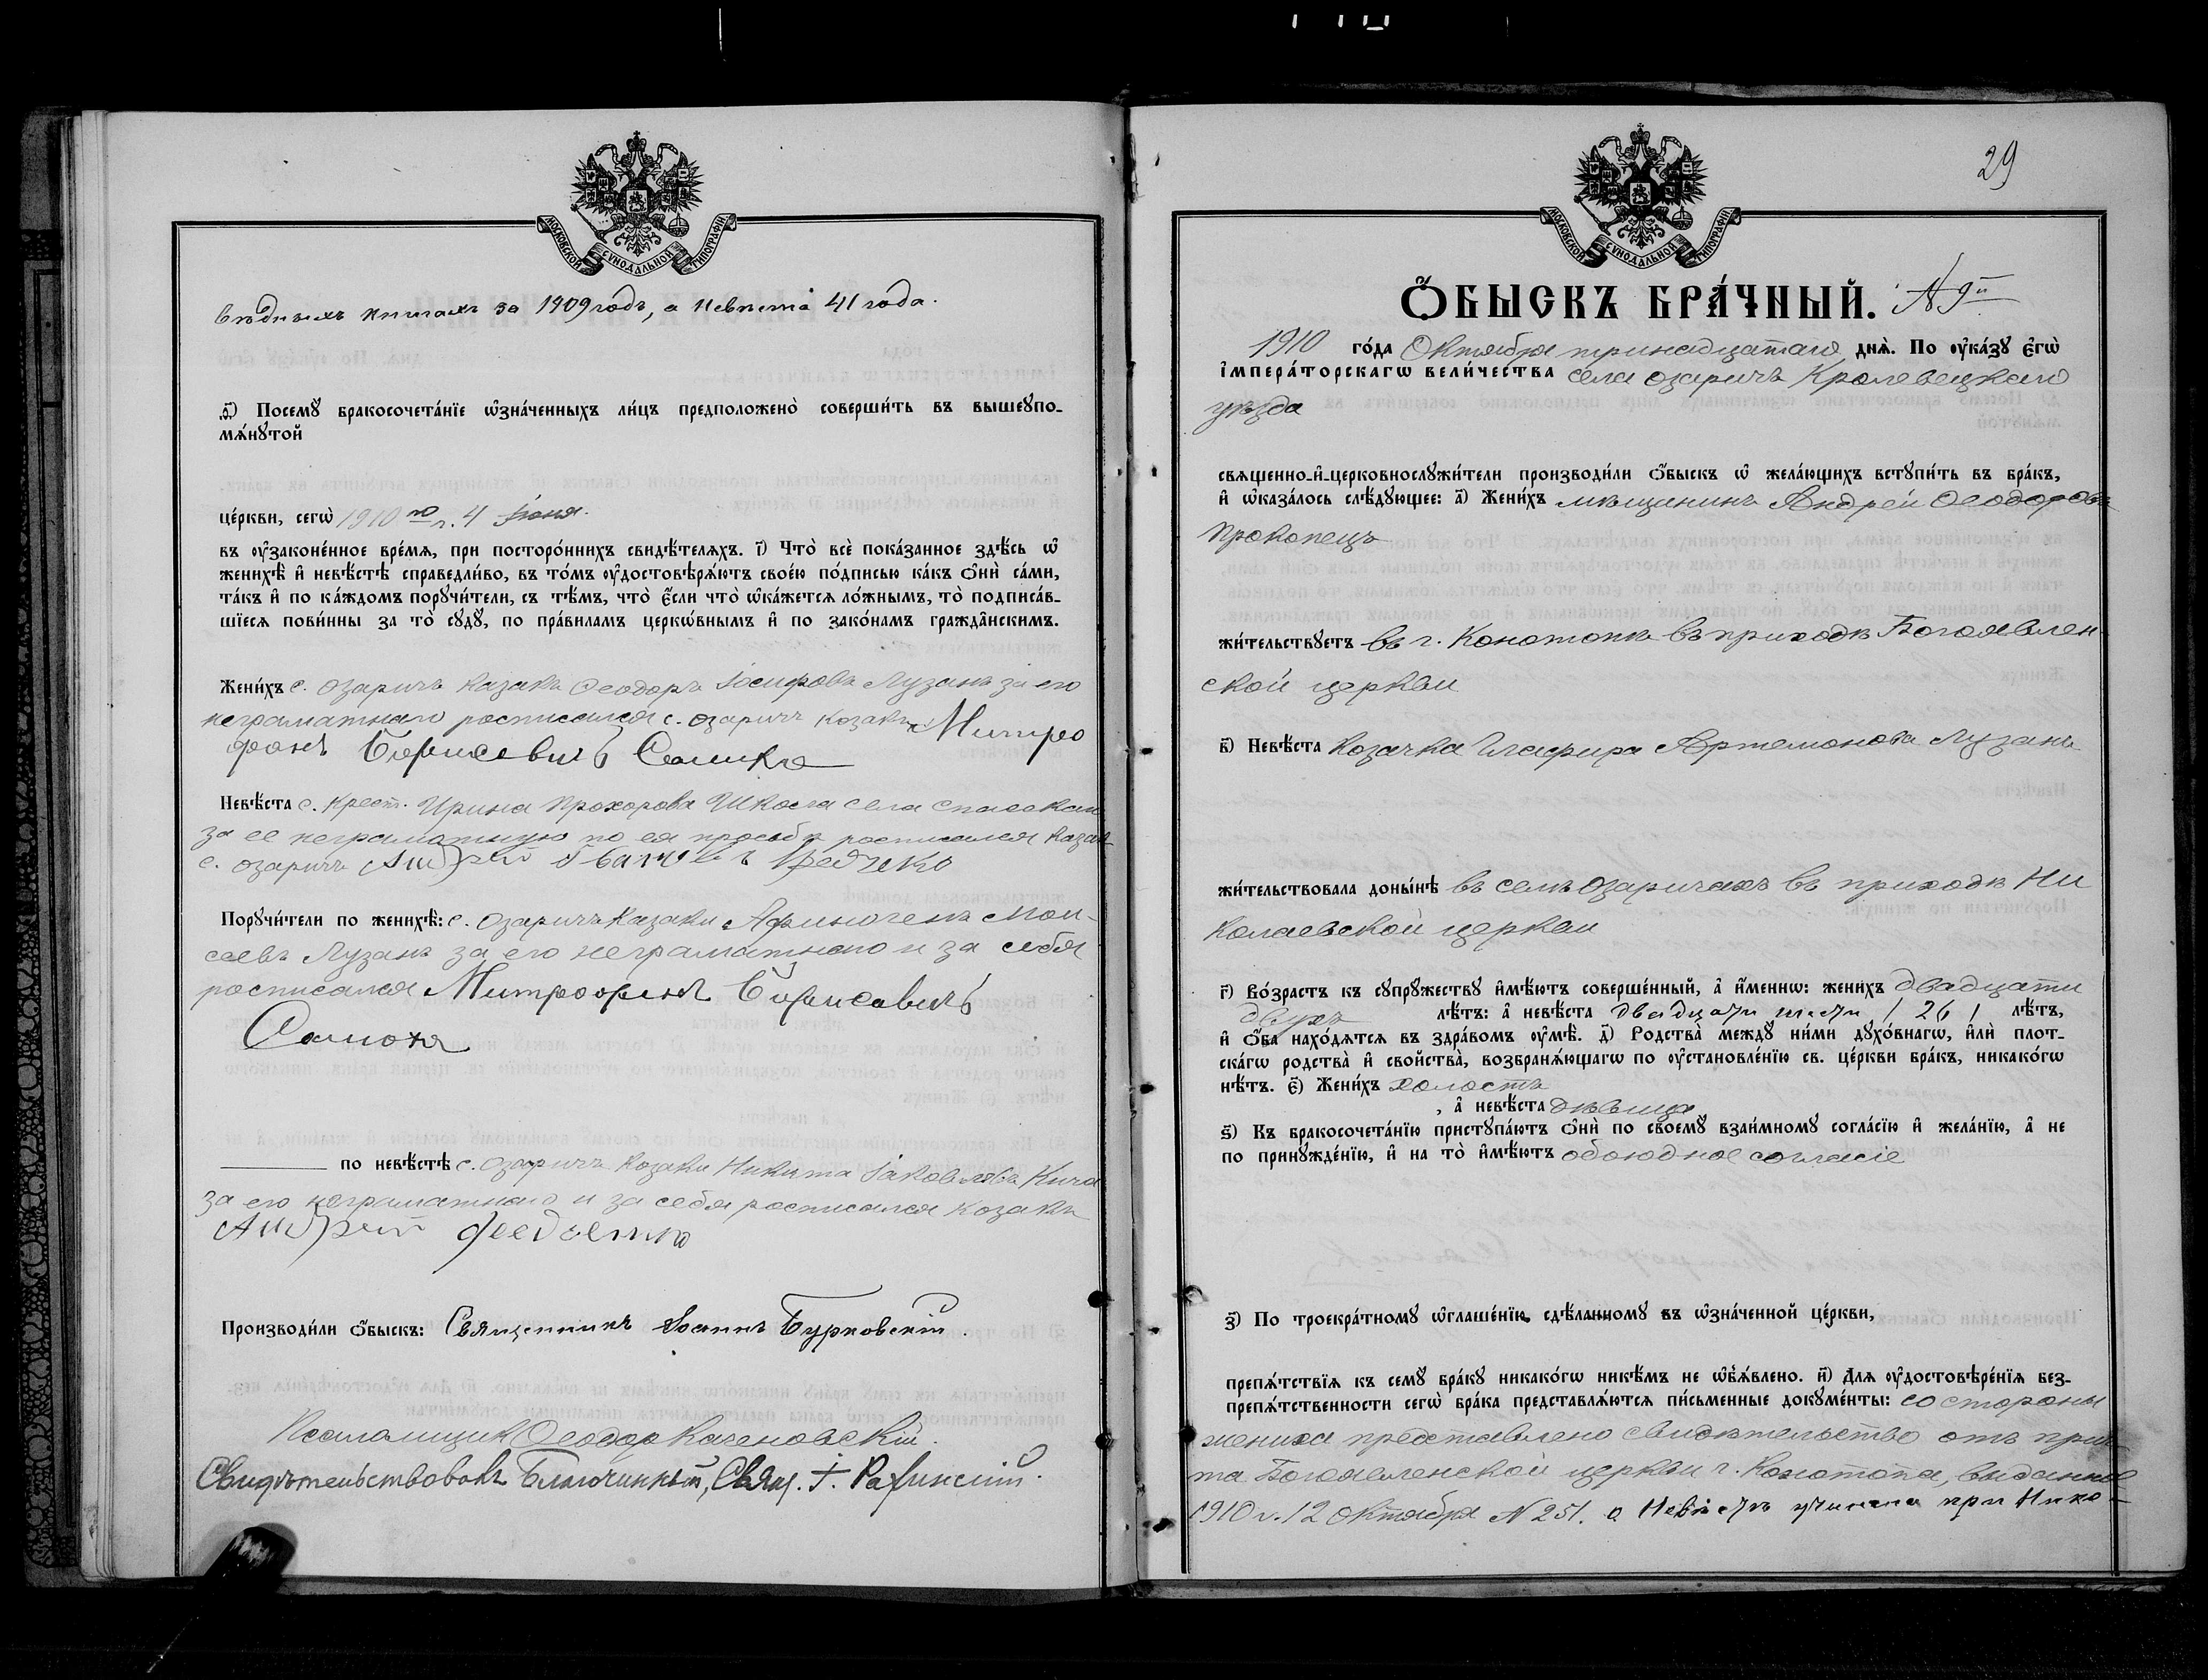 МОСКОВСКОЙ СѴНОДАЛЬНОЙ ТИПОГРАФІИ
вѣдныхъ книгахъ за 1909 годъ, а невѣста 41 года.
ѳ҃) Посемꙋ̀ бракосочета́нїе ѡ҆зна́ченныхъ ли́цъ предположено̀ соверши́ть въ вышеꙋпо-
мѧ́нꙋтой
це́ркви, сегѡ̀ 1910 го г. 4 Іюня.
въ ᲂу҆законе́нное вре́мѧ, при посторо́ннихъ свидѣ́телѧхъ. і҃) Что̀ всѐ пока́занное здѣ́сь ѡ҆
женихѣ̀ и҆ невѣ́стѣ справедли́во, въ то́мъ ᲂу҆достовѣрѧ́ютъ свое́ю по́дписью ка́къ ѻ҆нѝ са́ми,
та́къ и҆ по ка́ждомъ порꙋчи́тели, съ тѣ́мъ, что̀ є҆́сли что̀ ѡ҆ка́жетсѧ ло́жнымъ, то̀ подписа́в-
шїесѧ пови́нны за то̀ сꙋдꙋ̀, по пра́виламъ церкѡ́внымъ и҆ по зако́намъ гражда̑нскимъ.
Жени́хъ с. Озаричъ казакъ Ѳеодоръ Іосифовъ Лузанъ за его
неграматнаго росписался с. Озаричъ козакъ Митро
фанъ Борисевичъ
Невѣ́ста с. Крест. Ирина Прохорова села Спасскаго
за ее неграматную по ея просьбѣ росписался казакъ
с. Озаричъ Андрей
Порꙋчи́тели по женихѣ̀: с. Озаричъ казаки Афиногенъ Мои-
сеевъ Лузанъ за его неграматного и за себя
росписался Митрофанъ Борисевичъ
по невѣ́стѣ с. Озаричъ козаки Никита Іаковлевъ
за его неграматнаго и за себя росписался козакъ
Андрей
Производи́ли ѻ҆́быскъ: Священникъ Іоаннъ Бурковскій.
Псаломщикъ Ѳеодор Каченовскій.
Свидѣтельствовалъ Благочинный, Свящ.
29
МОСКОВСКОЙ СѴНОДАЛЬНОЙ ТИПОГРАФІИ
Ѻ҆́БЫСКЪ БРА́ЧНЫЙ. № 9й
1910 го́да Октября тринадцатаго днѧ̀. По ᲂу҆ка́зꙋ є҆гѡ̀
і҆мпера́торскагѡ вели́чества села Озаричъ Кролевецкаго
уѣзда
свѧщенно-и҆-церковнослꙋжи́тели производи́ли ѻ҆́быскъ ѡ҆ жела́ющихъ встꙋпи́ть въ бра́къ,
и҆ ѡ҆каза́лось слѣ́дꙋющее: а҃) Жени́хъ мѣщанинъ Андрей Ѳеодоровъ
Прокопецъ
жи́тельствꙋетъ въ г. Конотопѣ въ приходѣ Богоявлен-
ской церкви
в҃) Невѣ́ста Козачка Глафира Артемонова Лузанъ
жи́тельствовала доны́нѣ въ селѣ Озаричахъ въ приходѣ Ни
колаевской церкви
г҃) Во́зрастъ къ сꙋпрꙋ́жествꙋ и҆мѣ́ютъ соверше́нный, а҆ и҆́меннѡ: жени́хъ двадцати
двухъ лѣ́тъ: а҆ невѣ́ста двадцати шести / 26 / лѣ́тъ,
и҆ ѻ҆́ба нахо́дѧтсѧ въ здра́вомъ ᲂу҆мѣ̀. д҃) Родства̀ междꙋ̀ ни́ми дꙋхо́внагѡ, и҆лѝ плот-
ска́гѡ родства̀ и҆ свойства̀, возбранѧ́ющагѡ по ᲂу҆становле́нїю св. це́ркви бра́къ, никако́гѡ
нѣ́тъ. є҃) Жени́хъ холостъ
, а҆ невѣ́ста дѣвица
ѕ҃) Къ бракосочета́нїю пристꙋпа́ютъ ѻ҆нѝ по своемꙋ̀ взаи́мномꙋ согла́сїю и҆ жела́нїю, а҆ не
по принꙋжде́нїю, и҆ на то̀ и҆мѣ́ютъ обоюдное согласіе
з҃) По троекра́тномꙋ ѡ҆глаше́нїю, сдѣ́ланномꙋ въ ѡ҆зна́ченной це́ркви,
препѧ́тствїѧ къ семꙋ̀ бра́кꙋ никако́гѡ никѣ́мъ не ѡ҆б̾ѧ́влено. и҃) Длѧ ᲂу҆достовѣре́нїѧ без-
препѧ́тственности сегѡ̀ бра́ка представлѧ́ютсѧ пи́сьменные докꙋме́нты: со стороны
жениха представлено свидѣтельство отъ прич-
та Богоявленской церкви г. Конотопа, выданное
1910 г. 12 Октября № 251. а Невѣстѣ при Нико-